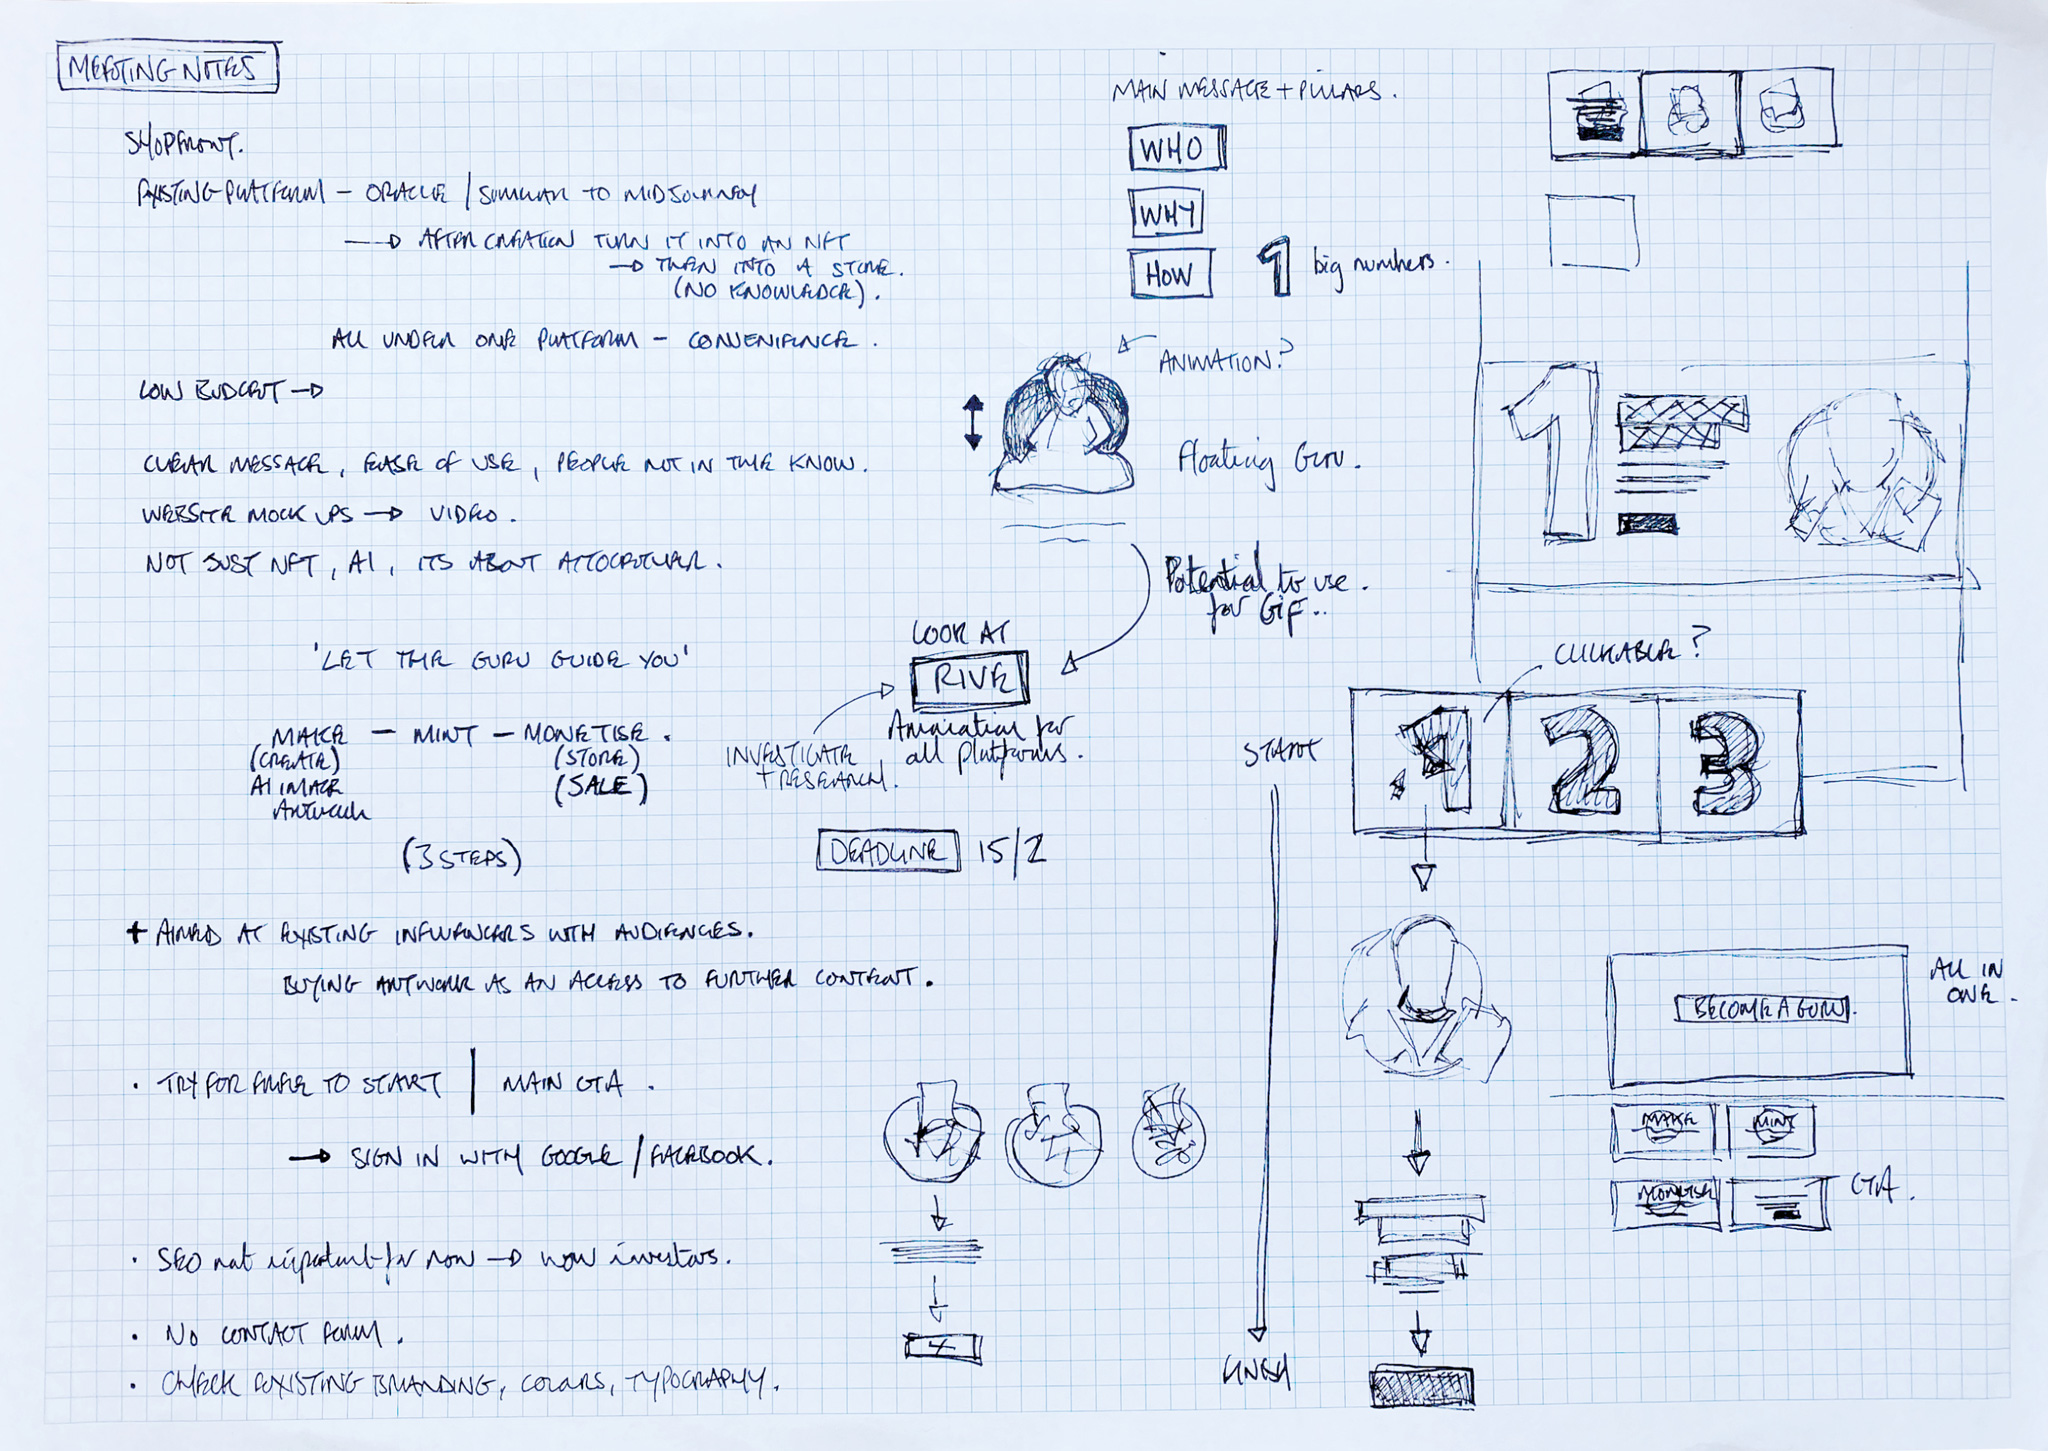 MEETING NOTES
SHOPFRONT.
EXISTING PLATFORM – ORACLE / SIMILAR TO MIDJOURNEY
→ AFTER CREATION TURN IT INTO AN NFT
→ THEN INTO A STORE.
(NO KNOWLEDGE).
ALL UNDER ONE PLATFORM – CONVENIENCE.
LOW BUDGET →
CLEAR MESSAGE, EASE OF USE, PEOPLE NOT IN THE KNOW.
WEBSITE MOCK UPS → VIDEO.
NOT JUST NFT, AI, ITS ABOUT ALTOGETHER.
'LET THE GURU GUIDE YOU'
MAKE – MINT – MONETISE.
(CREATE) (STORE)
AI IMAGE (SALE)
Artwork
(3 STEPS)
+ AIMED AT EXISTING INFLUENCERS WITH AUDIENCES.
BUYING ARTWORK AS AN ACCESS TO FURTHER CONTENT.
· TRY FOR FREE TO START | MAIN CTA.
→ SIGN IN WITH GOOGLE / FACEBOOK.
· SEO not important for now → now investors.
· NO CONTACT FORM.
· CHECK EXISTING BRANDING, COLORS, TYPOGRAPHY.
MAIN MESSAGE + PILLARS.
WHO
WHY
HOW
1 big numbers.
ANIMATION?
Floating Guru.
Potential to use
for GIF..
LOOK AT
RIVE
Animation for
all platforms.
INVESTIGATE
+ RESEARCH.
DEADLINE 15/2
1
CLICKABLE?
START
1 2 3
FINISH
ALL IN
ONE.
BECOME A GURU.
MAKE
MINT
MONETISE
CTA.